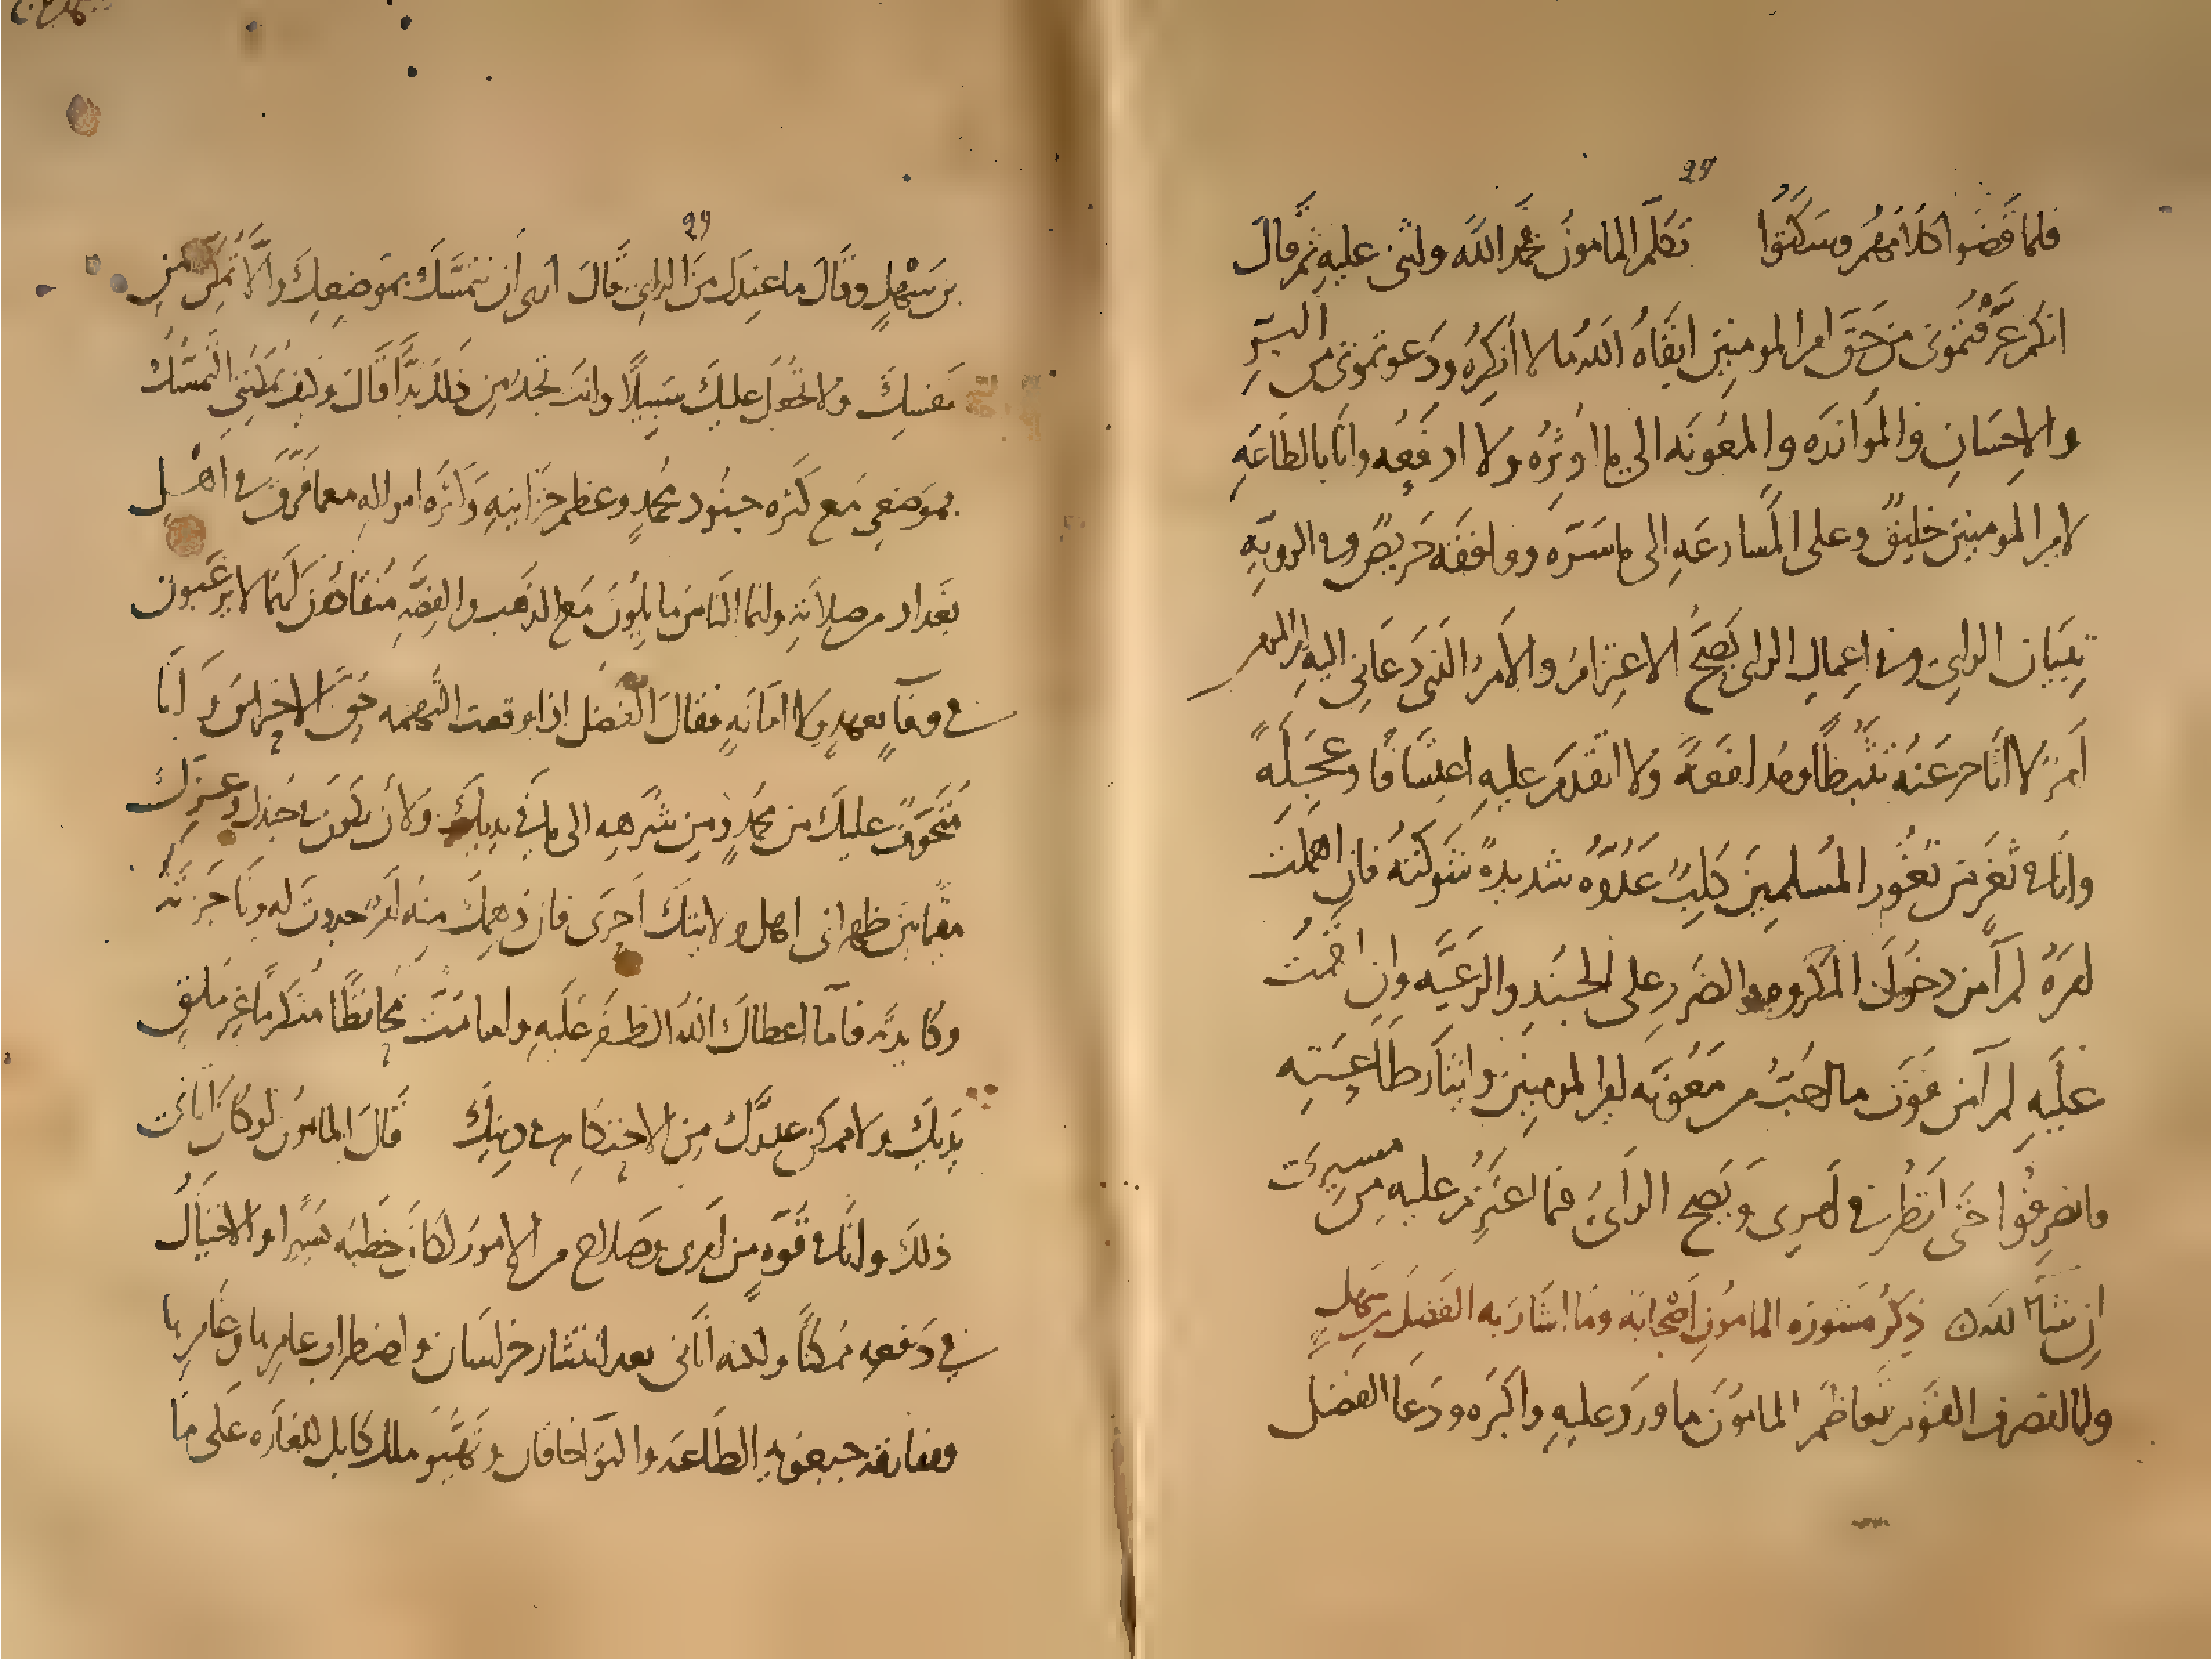 29
فلما قضوا كلامهم وسكتوا تكلم المامون فحمد الله واثنى عليه ثم قال
انكم عرفتمونى من حق امير المومنين ابقاه الله ما لا انكره ودعوتمونى من البر
والاحسان والموازره والمعونه الى ما اوثره ولا ادفعه وانا بالطاعه
لامير المومنين خليق وعلى المسارعه الى ما سره ووافقه حريص وفى الرويه
تبيان الراى وفى اعمال الراى يصح الاعتزام والامر الذى دعانى اليه امير المومنين
امر لا اتاخر عنه تثبطا ومدافعة ولا اتقدم عليه اعتسافا وعجلة
وانا فى ثغر من ثغور المسلمين كلب عدوه شديدة شوكته فان اهملت
امره لم آمن دخول المكروه والضرر على الجند والرعيه وان اقمت
عليه لم آمن فوت ما احب من معونه امير المومنين وايثار طاعته
فانصرفوا حتى انظر فى امرى ويصح الراى فيما اعتزم عليه من مسيرى
ان شا الله ذكر مشوره المامون اصحابه وما اشار به الفضل بن سهل
ولما انصرف القوم تعاظم المامون ما ورد عليه واكبره ودعا الفضل
29
بن سهل وقال ما عندك من الراى قال ارى ان تتمسك بموضعك والا تمكن من
نفسك ولا تجعل عليك سبيلا وانت تجد من ذلك بدا قال وكيف يمكننى التمسك
بموضعى مع كثره جنود محمد وعظم خزاينه وكثره امواله مع ما فرق فى اهل
بغداد من صلاته وانما الناس مايلون مع الذهب والفضه منقادون لهما لا يرغبون
فى وفا بعهد ولا امانه فقال الفضل اذا وقعت التهمه حق الاحتراس وانا
متخوف عليك من محمد ومن شرهه الى ما فى يديك ولان تكون فى جندك وعزك
مقيما بين ظهرانى اهل ولايتك احرى فان دهمك منه امر جردت له وناجزته
وكايدته فاما اعطاك الله الظفر عليه واما مت محافظا متكرما غير ملق
بيديك ولا ممكن عدوك من الاحتكام فى دينك قال المامون لو كان اتانى
ذلك وانا فى قوه من امرى وصلاح من الامور لكان خطبه يسيرا والاحتيال
فى دفعه ممكنا ولكنه اتانى بعد انتشار خراسان واضطراب عامرها وغامرها
ومفارقه جبغويه الطاعه والتوا خاقان وتهيو ملك كابل للغاره على ما